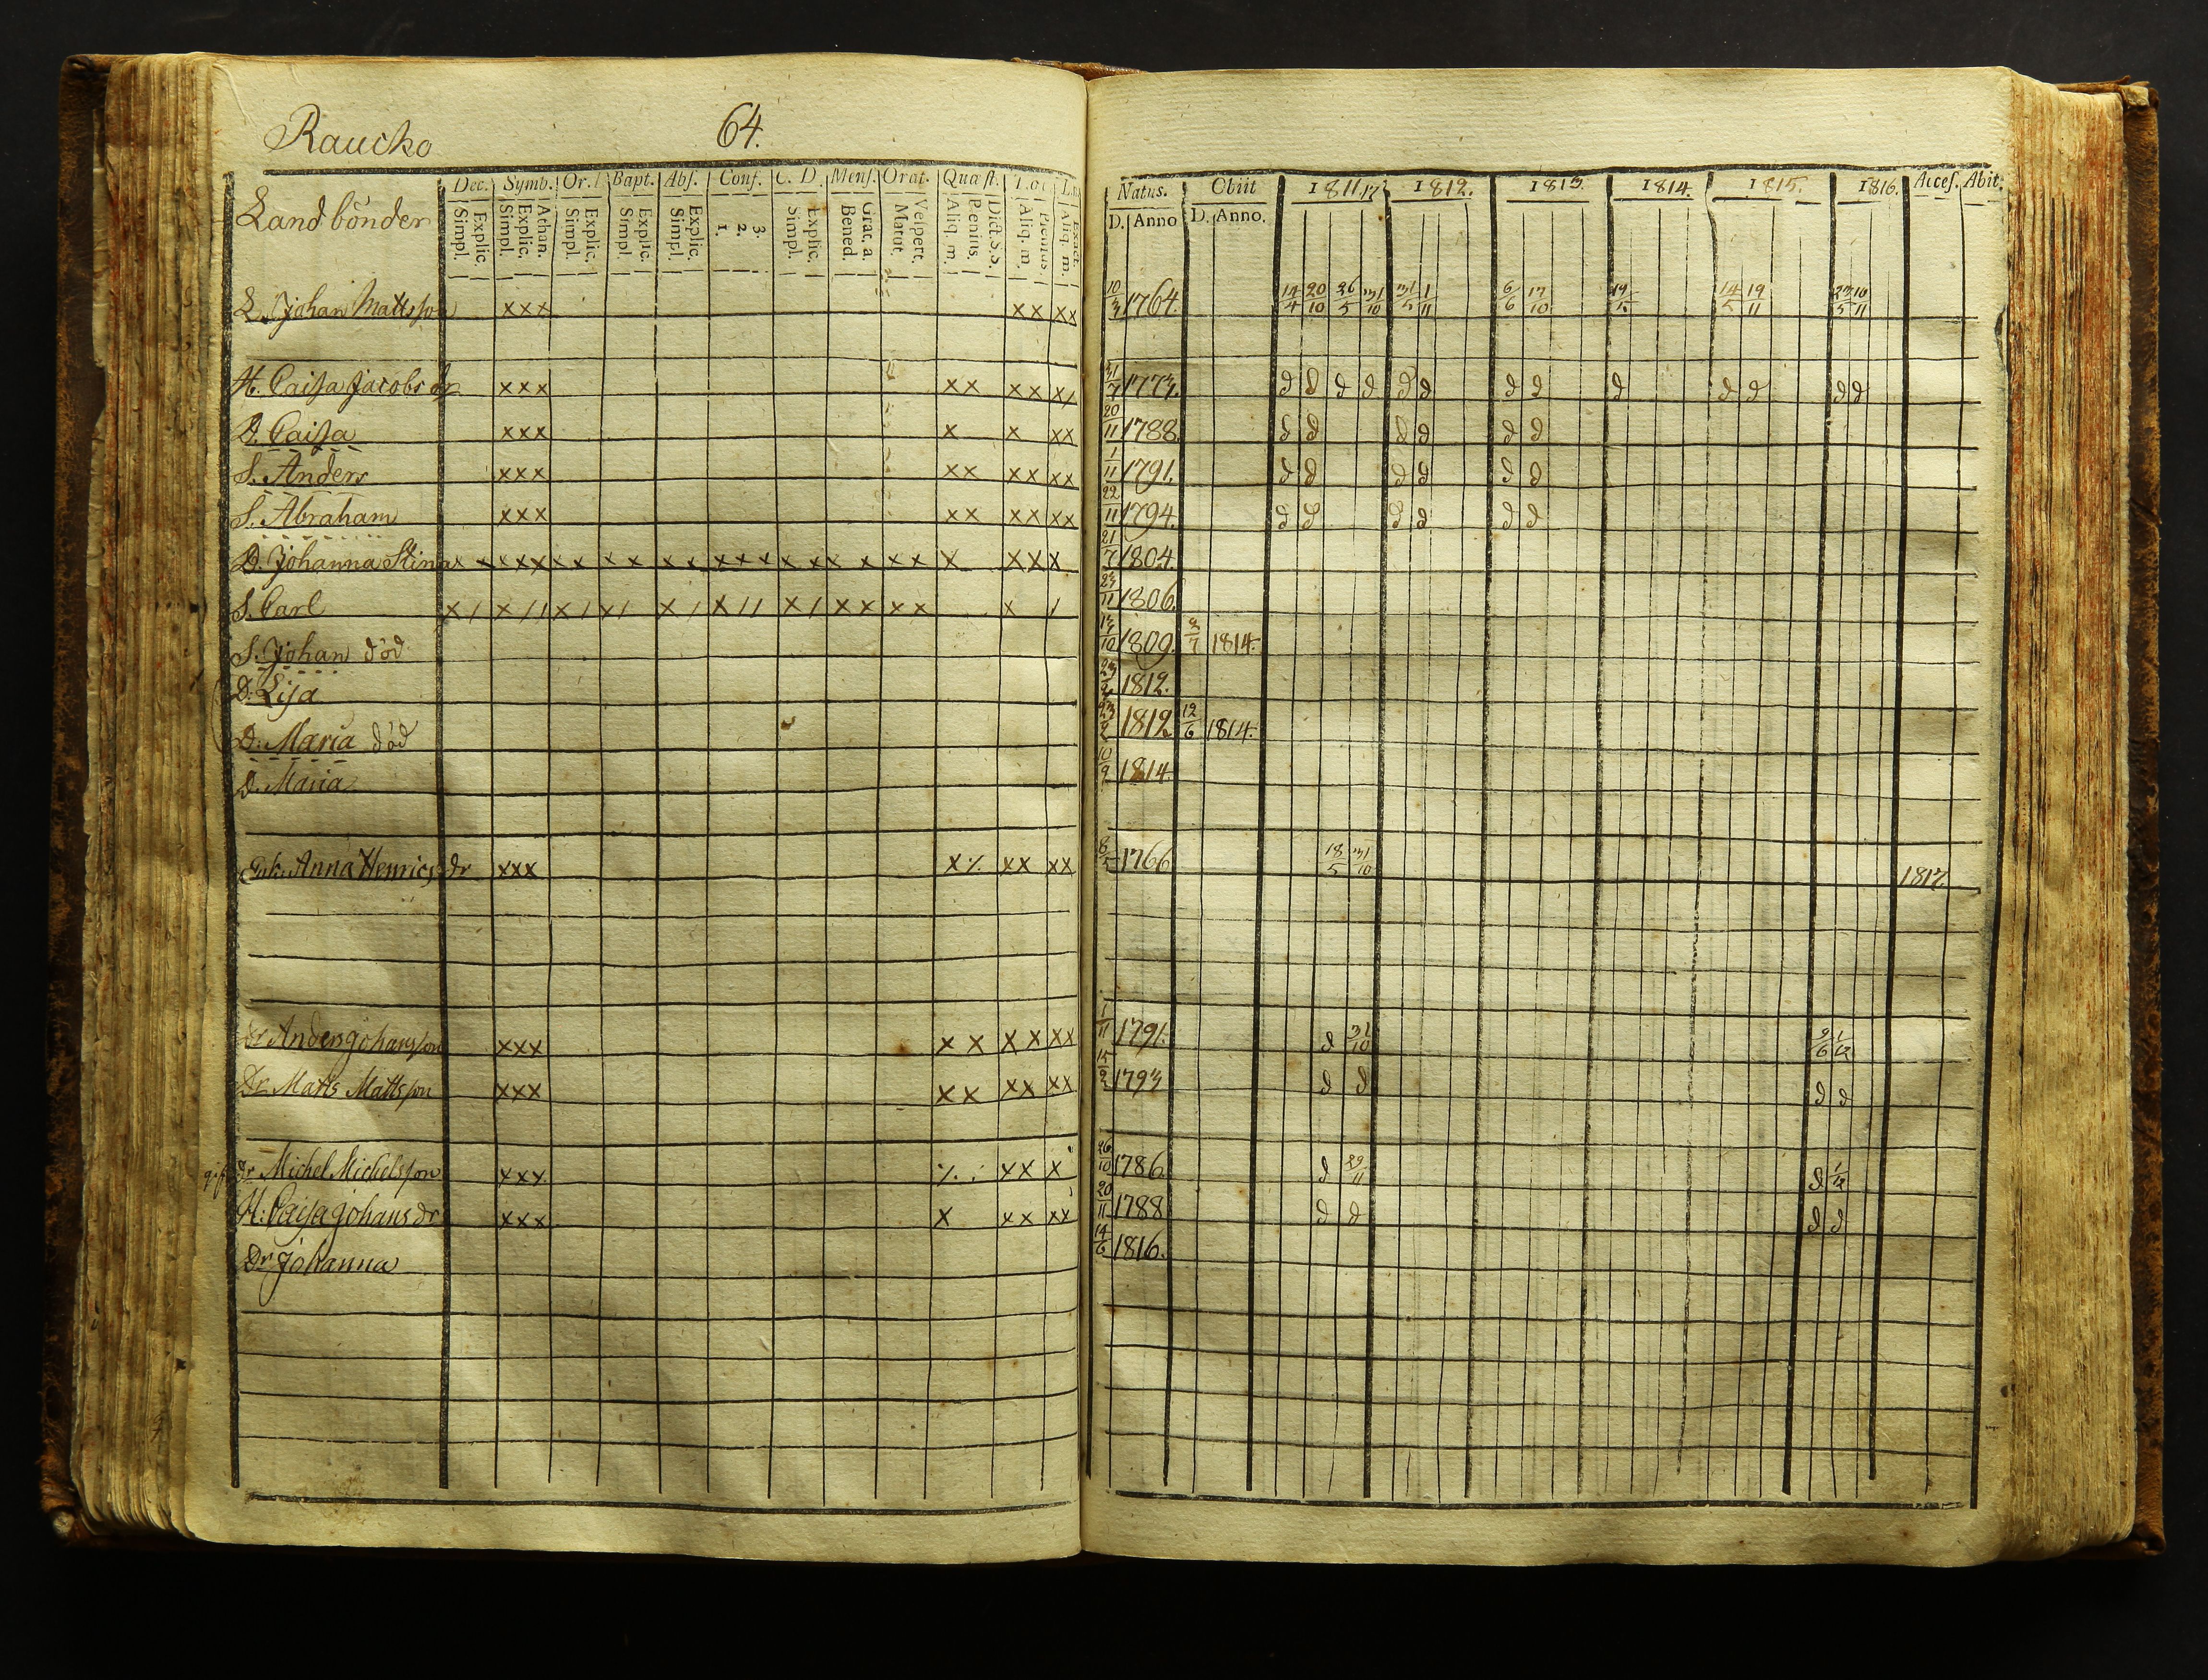 Raucko
64.
Landbönder
Dec. Symb. Or. Bapt. Abs. Conf. C. D. Mens. Orat. Quæst.
Explic. Simpl. Athan. Explic. Simpl. Explic. Simpl. Explic. Simpl. Explic. Simpl. 3. 2. 1. Explic. Simpl. Grat. a. Bened. Vespert. Matut. Dict. S. S. Plenius. Aliq. m. Plenius. Aliq. m. Exact. Aliq. m.
Natus. Obiit 1811,17 1812. 1813. 1814. 1815. 1816. Acces. Abit.
D. Anno D. Anno.
L. Johan Mattsson xxx xx xx 10/3 1764. 14/4 20/10 26/5 31/10 31/5 1/11 6/6 17/10 14/5 19/11 23/5 10/11
H. Caisa Jacobs dr xxx xx xx x/ 31/7 1773. d d d d d d d d d d d d d
D. Caisa xxx x x xx 20/11 1788. d d d d d d
S. Anders xxx xx xx xx 1/11 1791. d d d d d d
S. Abraham xxx xx xx xx 22/11 1794. d d d d d d
D. Johanna Stina xx xxx xx xx xx xxx xx x x xx x xx x 21/7 1804.
S. Carl x/ x// x/ x/ x/ x// x/ xx xx x / 23/11 1806.
S. Johan död 13/10 1809. 2/7 1814.
D. Lisa 23/2 1812.
D. Maria död 23/2 1812 12/6 1814.
D. Maria 10/9 1814.
Enk. Anna Henrics dr xxx x ∕. xx xx 8/5 1766 18/5 31/10 1817.
dr Anders Johansson xxx x x x x xx 1/11 1791. d 31/10 2/6 1/12
Dr. Matts Mattsson xxx x x xx xx 15/2 1793 d d d d
gift dr Michel Michelsson xxx xx x 26/10 1786. d 29/11 d 1/12
H: Caisa Johans dr xxx x xx xx 20/11 1788 d d d d
Dr Johanna 14/6 1816.